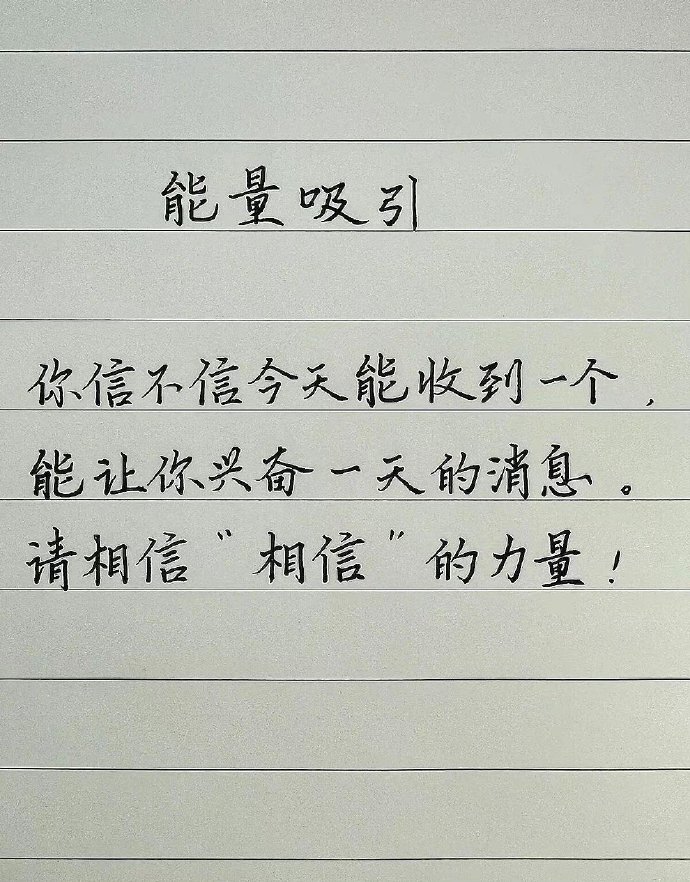 能量吸引
你信不信今天能收到一个，
能让你兴奋一天的消息。
请相信“相信”的力量！